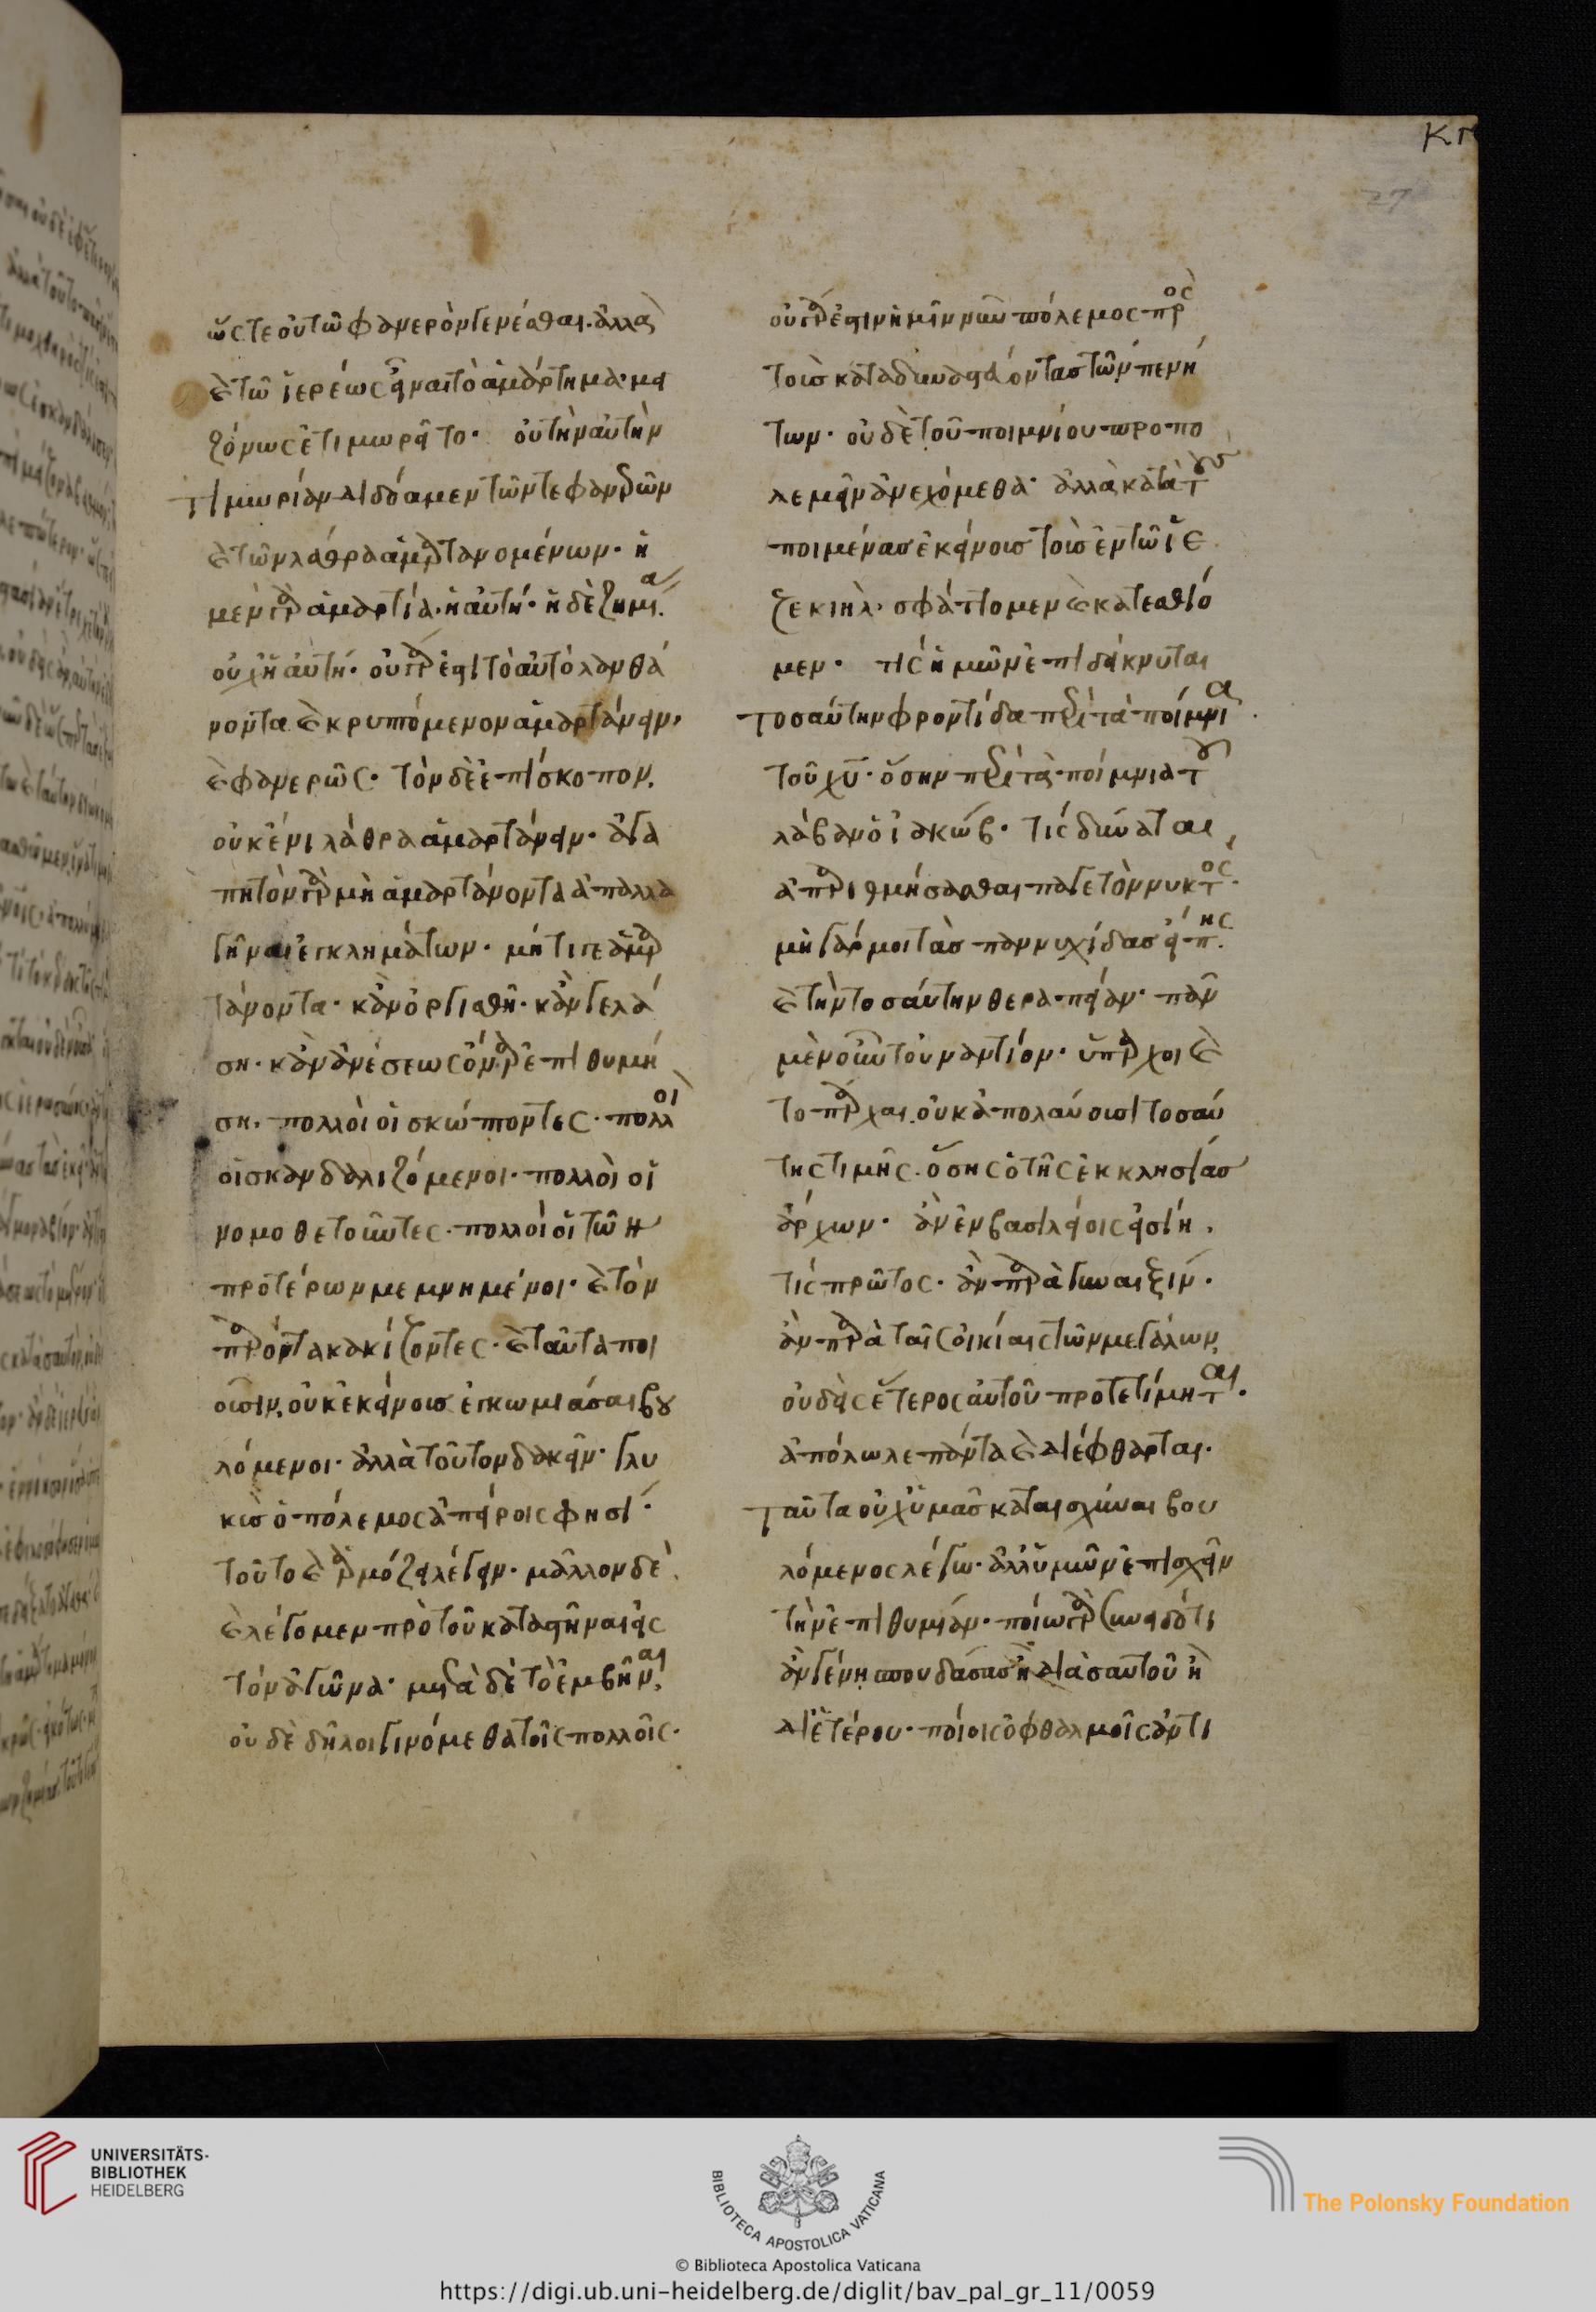 ΚΓ
27
ὥστε οὕτω φανερὸν γενέσθαι. ἀλλὰ
καὶ τῶ ἱερέως εἶναι τὸ ἁμάρτημα· μει
ζόνως ἐτιμωρεῖτο· οὐ τὴν αὐτὴν
τιμωρίαν δίδοαμεν τῶν τε φανερῶν
καὶ τῶν λάθρα ἁμαρτανομένων· ἡ
μὲν γὰρ ἁμαρτία. ἡ αὐτή· ἡ δὲ ζημία.
οὐχ ἡ αὐτή· οὐ γάρ ἐστι τὸ αὐτὸ λανθά
νοντα καὶ κρυπτόμενον ἁμαρτάνειν,
καὶ φανερῶς· τὸν δὲ ἐπίσκοπον.
οὐκ ἔνι λάθρα ἁμαρτάνειν· ἀγα
πητὸν γὰρ μὴ ἁμαρτάνοντα ἀπαλλα
γῆναι ἐγκλημάτων· μήτι γε ἁμαρ
τάνοντα· κἂν ὀργισθῆ· κἂν γελά
ση· κἂν ἀνέσεως ὄναρ ἐπιθυμή
ση. πολλοὶ οἱ σκώπτοντες· πολλοὶ
οἱ σκανδαλιζόμενοι· πολλοὶ οἱ
νομοθετοῦντες· πολλοὶ οἱ τῶν
προτέρων μεμνημένοι· καὶ τὸν
παρόντα κακίζοντες· καὶ ταῦτα ποι
οῦσιν, οὐκ ἐκείνοις ἐγκωμιάσαι βου
λόμενοι· ἀλλὰ τοῦτον δακεῖν· γλυ
κὺς ὁ πόλεμος ἀπείροις φησί·
τοῦτο καὶ ἁρμόζει λέγειν· μᾶλλον δὲ
καὶ λέγομεν πρὸ τοῦ καταστῆναι εἰς
τὸν ἀγῶνα· μετὰ δὲ τὸ ἐμβῆναι.
οὐδὲ δῆλοι γινόμεθα τοῖς πολλοῖς·
οὐ γάρ ἐστιν ἡμῖν νῦν πόλεμος πρὸς
τοὺς καταδυναστεύοντας τῶν πενή
των· οὐδὲ τοῦ ποιμνίου προπο
λεμεῖν ἀνεχόμεθα· ἀλλὰ κατὰ τοὺς
ποιμένας ἐκείνους τοὺς ἐν τῶ ἰε
ζεκιὴλ· σφάττομεν καὶ κατεσθίο
μεν· τίς ἡμῶν ἐπιδείκνυται
τοσαύτην φροντίδα περὶ τὰ ποίμνια
τοῦ χυ· ὅσην περὶ τὰ ποίμνια τοῦ
λάβαν ὁ ἰακώβ· τίς δύναται
ἀπαριθμήσασθαι παγετὸν νυκτός·
μὴ γάρ μοι τὰς παννυχίδας εἴπης.
καὶ τὴν τοσαύτην θεραπείαν· πᾶν
μὲν οὖν τουναντίον· ὕπαρχοι καὶ
τοπάρχαι, οὐκ ἀπολαύουσι τοσαύ
της τιμῆς. ὅσης ὁ τῆς ἐκκλησίας
ἄρχων· ἂν ἐν βασιλείοις εἰσίη.
τίς πρῶτος· ἂν παρὰ γυναιξίν.
ἂν παρὰ ταῖς οἰκίαις τῶν μεγάλων,
οὐδεὶς ἕτερος αὐτοῦ προτετίμηται.
ἀπόλωλε πάντα καὶ διέφθαρται.
ταῦτα οὐχ ὑμᾶς καταισχύναι βου
λόμενος λέγω· ἀλλ' ὑμῶν ἐπισχεῖν
τὴν ἐπιθυμίαν· ποίω γὰρ συνειδότι
ἂν γένη σπουδάσας ἢ διὰ σαυτοῦ ἢ
δι' ἑτέρου· ποίοις ὀφθαλμοῖς ἀντι
UNIVERSITÄTS-
BIBLIOTHEK
HEIDELBERG
BIBLIOTECA APOSTOLICA VATICANA
The Polonsky Foundation
© Biblioteca Apostolica Vaticana
https://digi.ub.uni-heidelberg.de/diglit/bav_pal_gr_11/0059